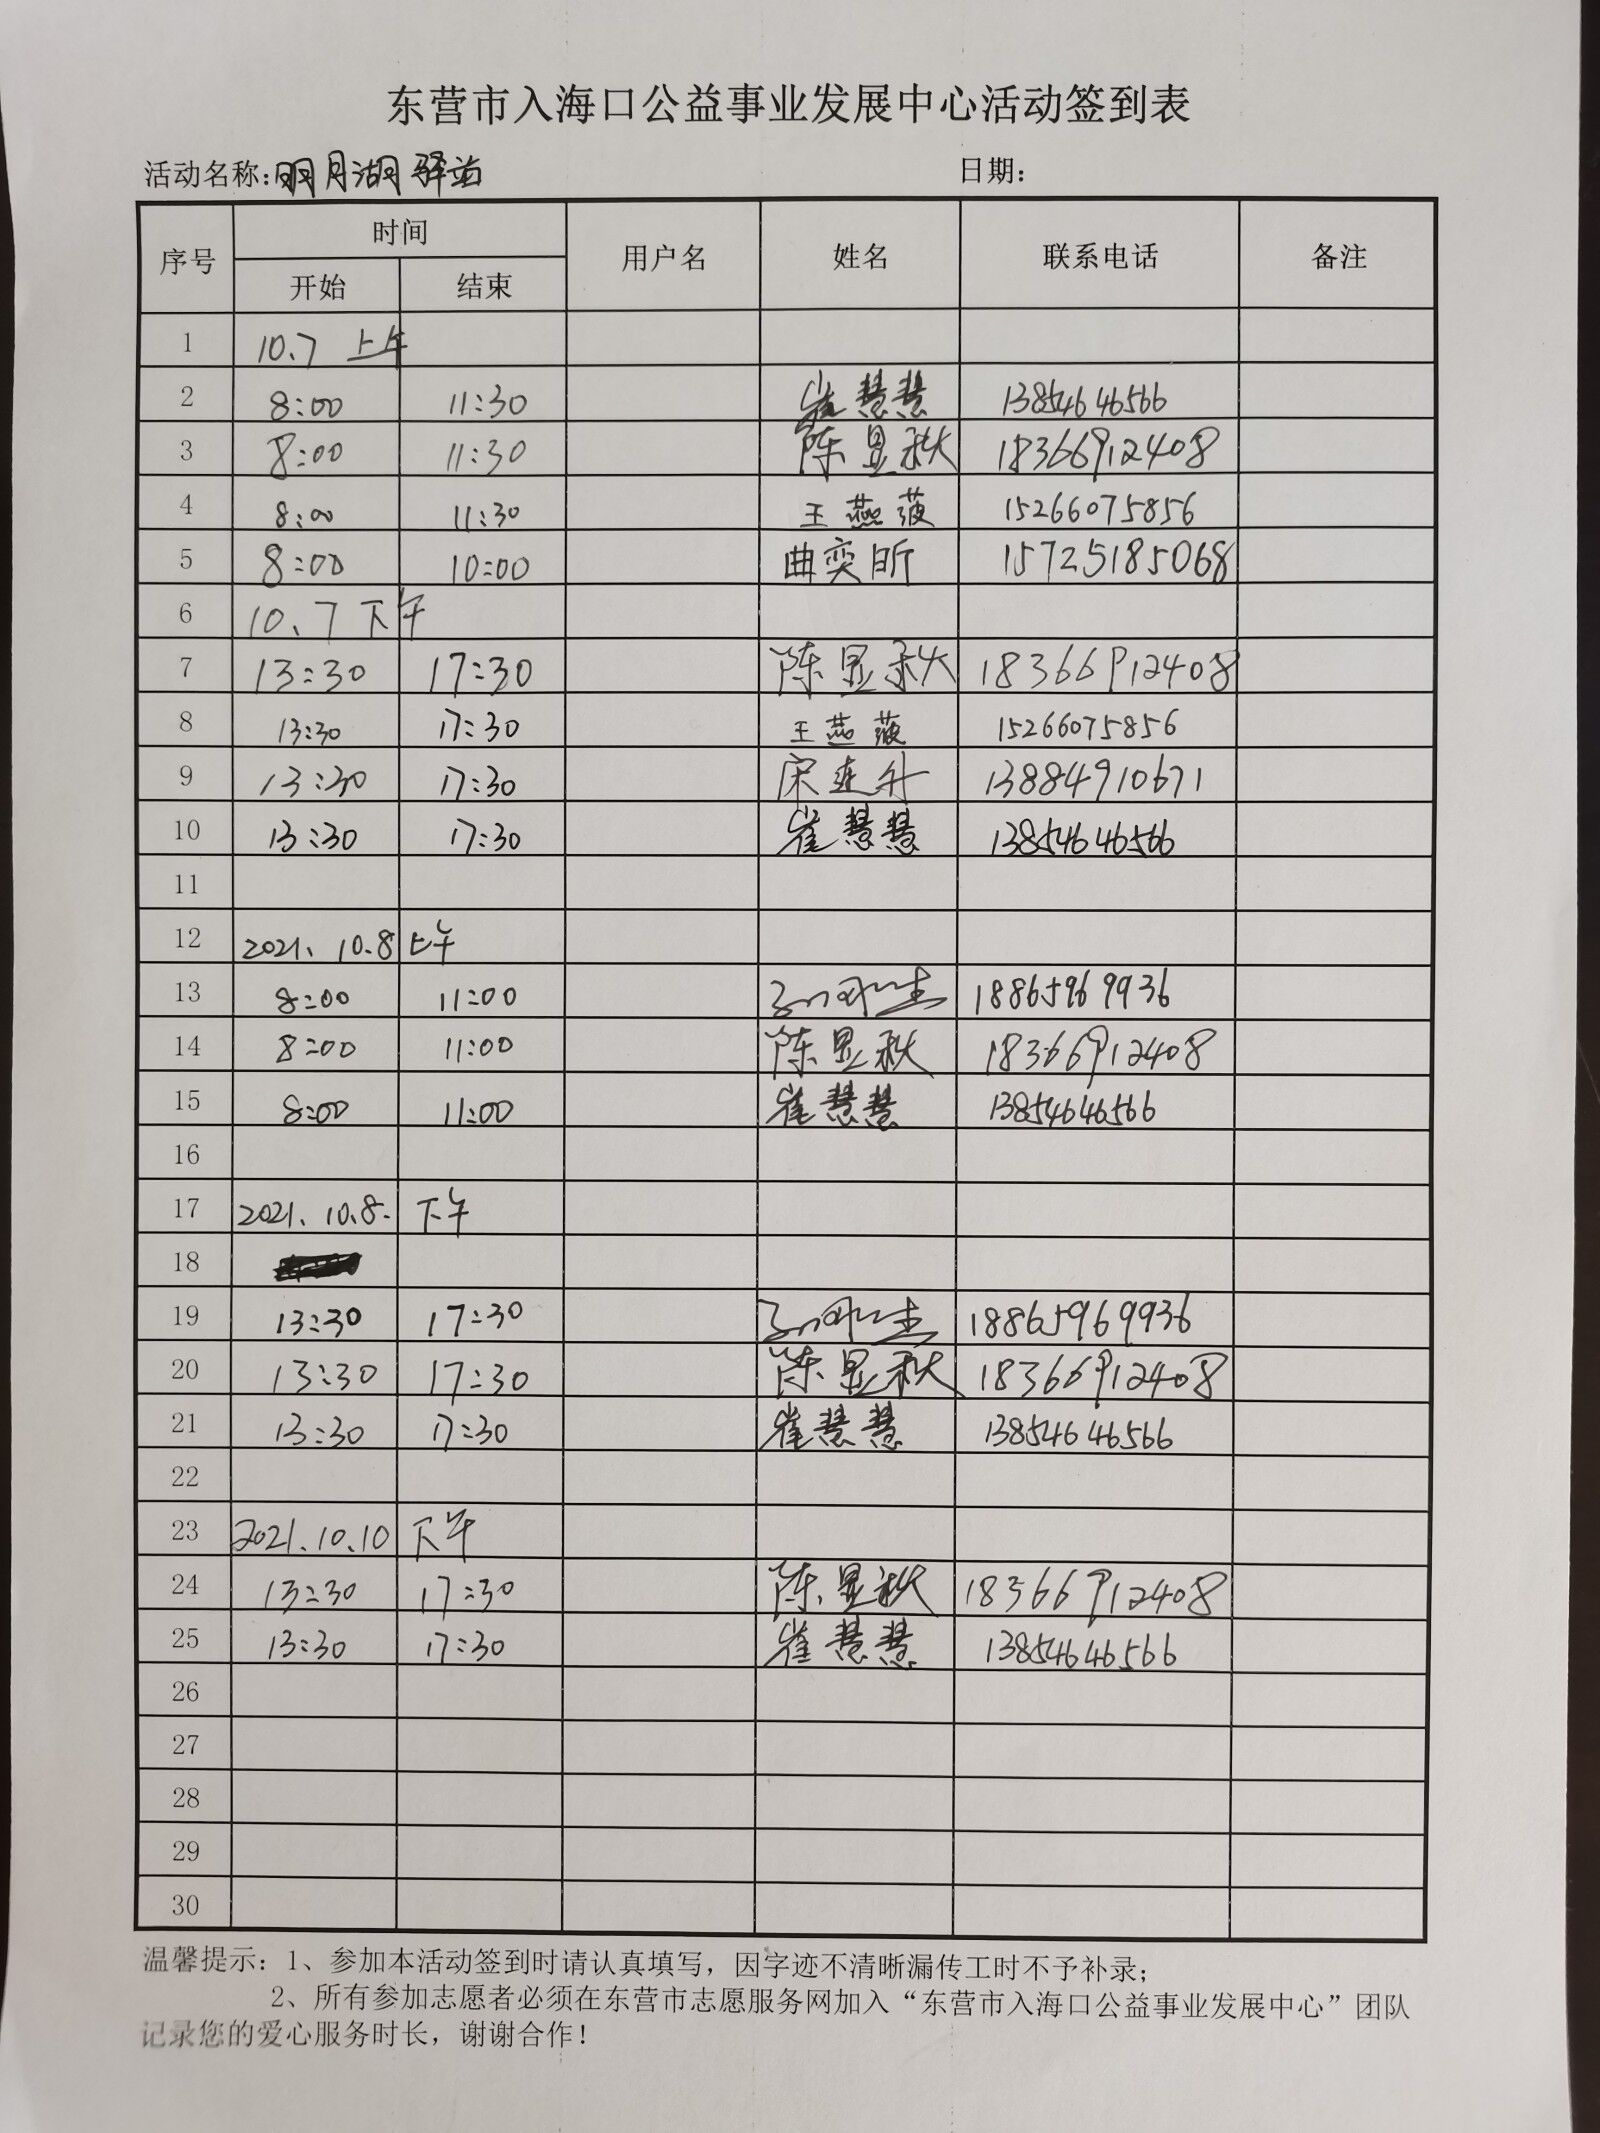 东营市入海口公益事业发展中心活动签到表
活动名称：明月湖驿站 日期：
序号 时间 用户名 姓名 联系电话 备注
开始 结束
1 10.7 上午
2 8:00 11:30 崔慧慧 13854646566
3 8:00 11:30 陈显秋 18366912408
4 8:00 11:30 王燕薇 15266075856
5 8:00 10:00 曲奕昕 15725185068
6 10.7 下午
7 13:30 17:30 陈显秋 18366912408
8 13:30 17:30 王燕薇 15266075856
9 13:30 17:30 宋连升 13884910671
10 13:30 17:30 崔慧慧 13854646566
11
12 2021.10.8 上午
13 8:00 11:00 18865969936
14 8:00 11:00 陈显秋 18366912408
15 8:00 11:00 崔慧慧 13854646566
16
17 2021.10.8. 下午
18
19 13:30 17:30 18865969936
20 13:30 17:30 陈显秋 18366912408
21 13:30 17:30 崔慧慧 13854646566
22
23 2021.10.10 下午
24 13:30 17:30 陈显秋 18366912408
25 13:30 17:30 崔慧慧 13854646566
26
27
28
29
30
温馨提示：1、参加本活动签到时请认真填写，因字迹不清晰漏传工时不予补录；
2、所有参加志愿者必须在东营市志愿服务网加入“东营市入海口公益事业发展中心”团队
记录您的爱心服务时长，谢谢合作！